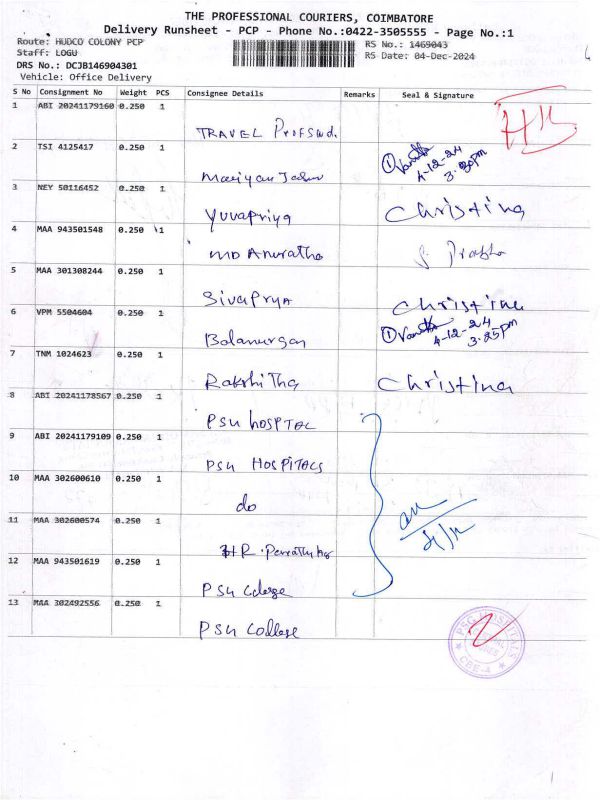 THE PROFESSIONAL COURIERS, COIMBATORE
Delivery Runsheet - PCP - Phone No.:0422-3505555 - Page No.:1
Route: HUDCO COLONY PCP
RS No.: 1469043
Staff: LOGU
RS Date: 04-Dec-2024
DRS No.: DCJB146904301
Vehicle: Office Delivery
S No Consignment No Weight PCS Consignee Details Remarks Seal & Signature
1 ABI 20241179160 0.250 1
TRAVEL
2 TSI 4125417 0.250 1
4-12-24
3 NEY 50116452 0.250 1
Yuvapriya Christina
4 MAA 943501548 0.250 1
MD Anuratha
5 MAA 301308244 0.250 1
SivaPrya Christina
6 VPM 5504604 0.250 1
Balamurgan 4-12-24
3.25pm
7 TNM 1024623 0.250 1
Rakshitha Christina
8 ABI 20241178567 0.250 1
PSG HOSPTAL
9 ABI 20241179109 0.250 1
PSG HOSPITALS
10 MAA 302600610 0.250 1
do
11 MAA 302600574 0.250 1
12 MAA 943501619 0.250 1
PSG
13 MAA 302492556 0.250 1
PSG College
PSG HOSPITALS
CBE-4